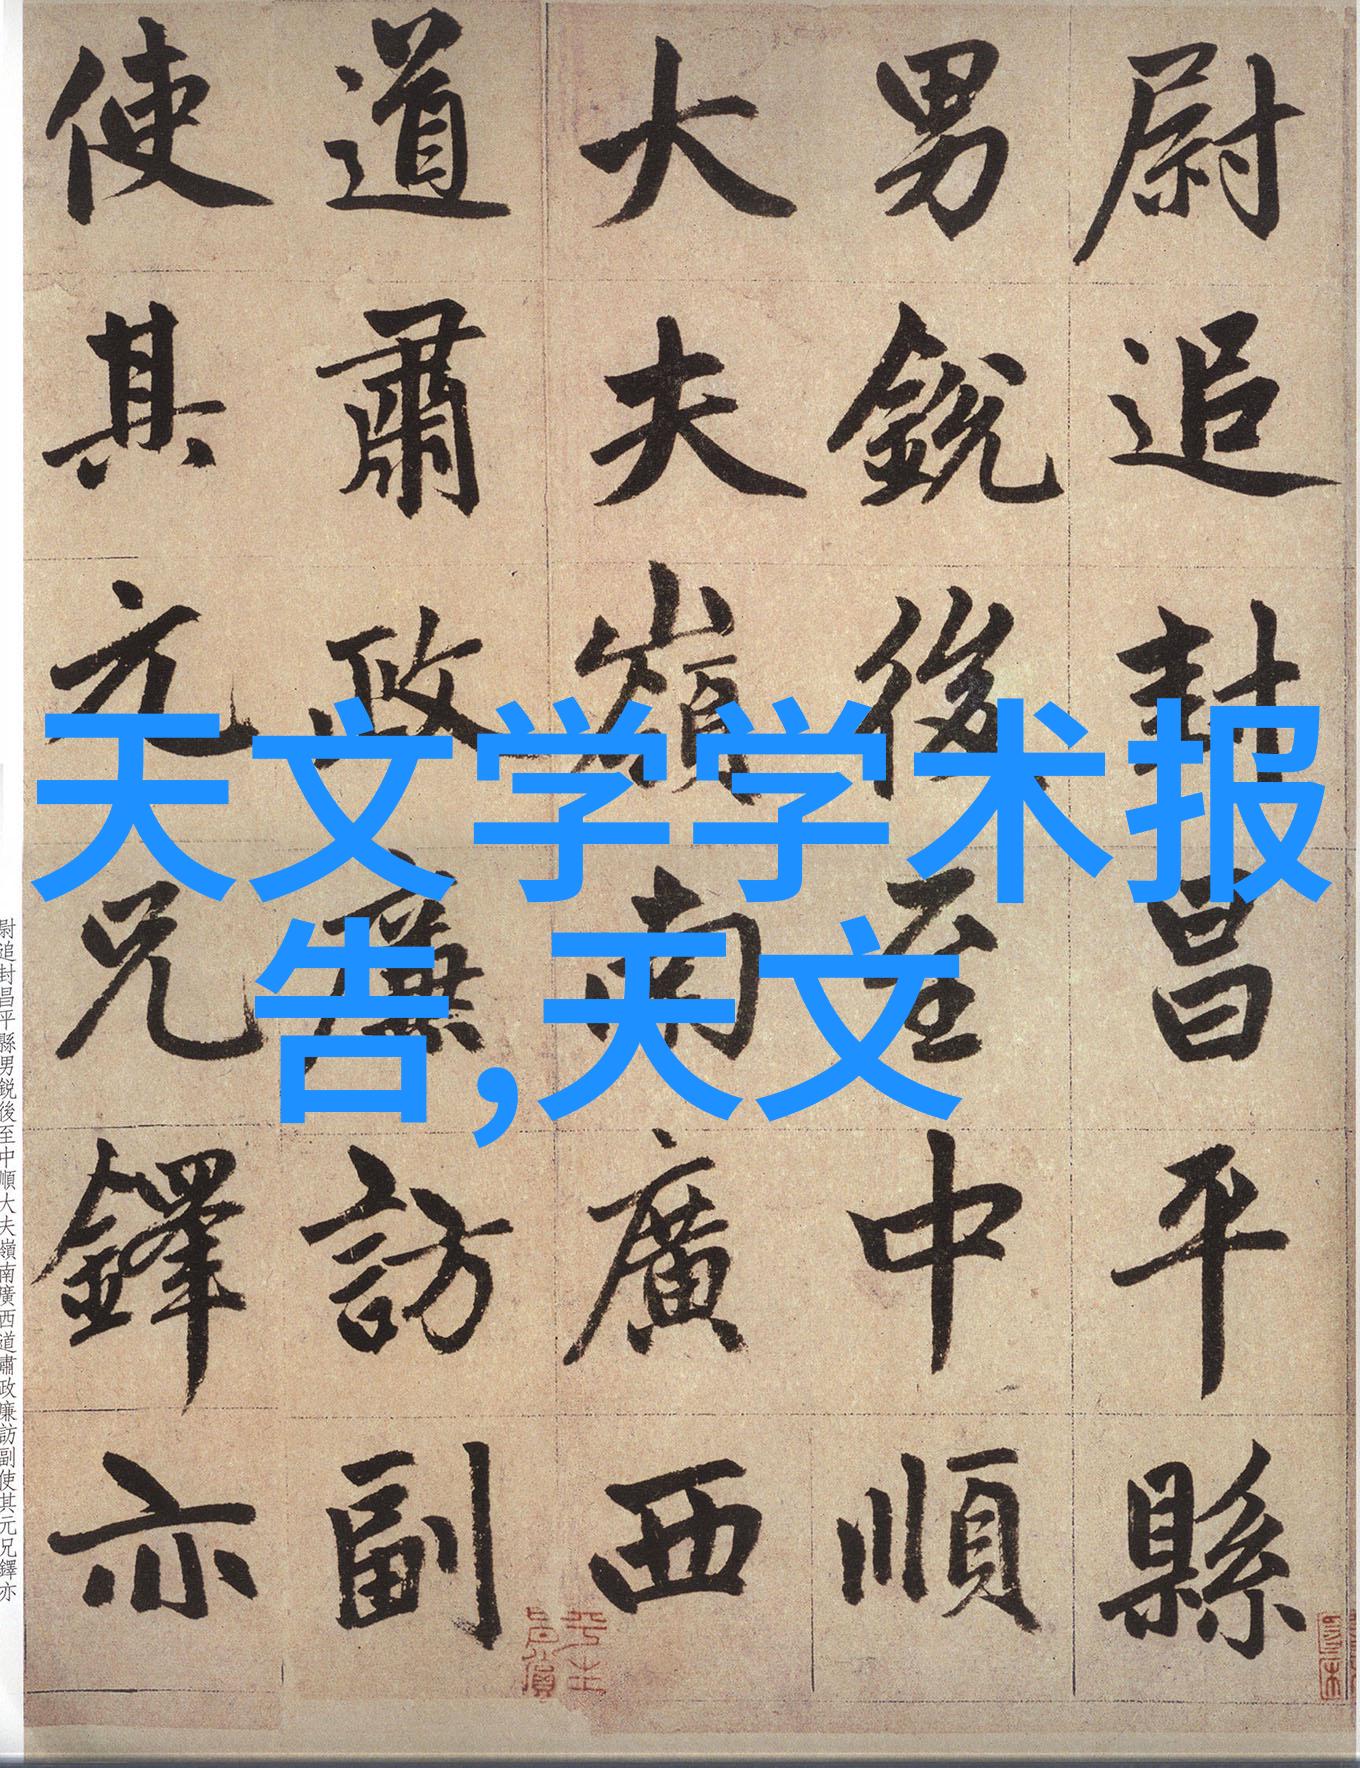 尉追封昌平縣
男銳後至中順
大夫嶺南廣西
道肅政廉訪副
使其元兄鐸亦
天文学学术报
告,天文
尉追封昌平縣男銳後至中順大夫嶺南廣西道肅政廉訪副使其元兄鐸亦